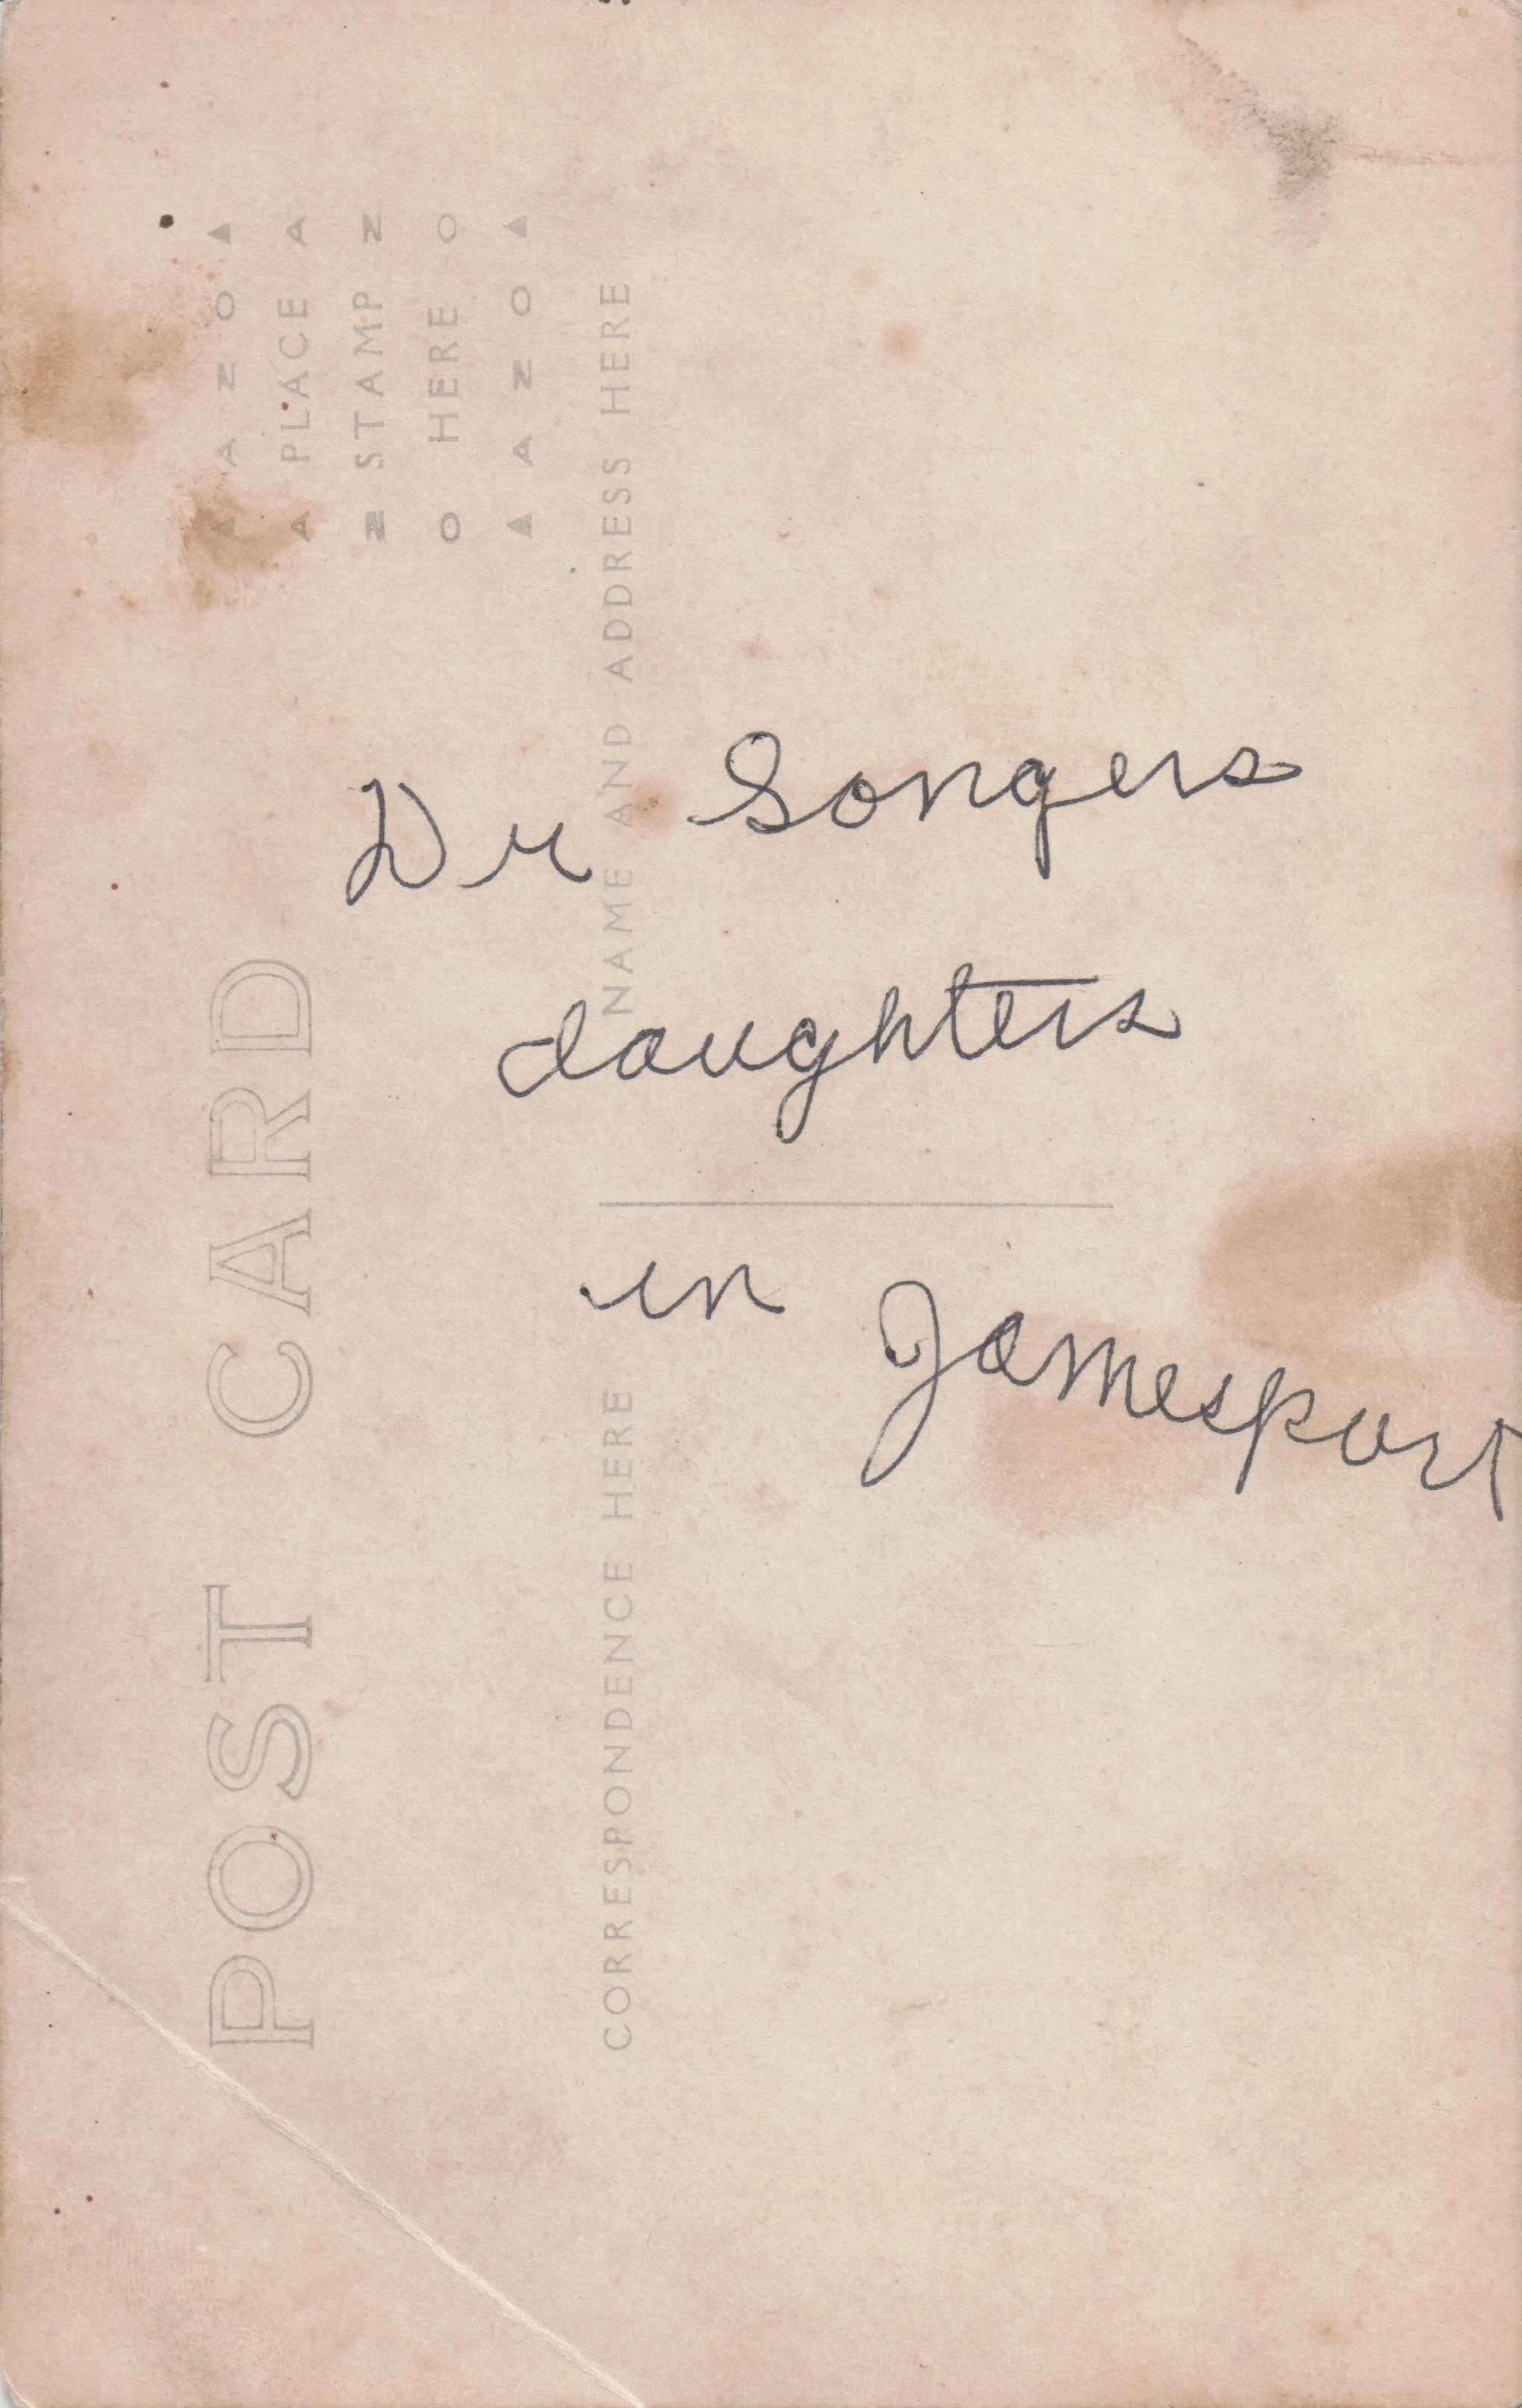 Dr Songers
daughters
in Jamesport
POST CARD
▲ A Z O ▲
A PLACE A
Z STAMP Z
O HERE O
▲ A Z O ▲
CORRESPONDENCE HERE
NAME AND ADDRESS HERE